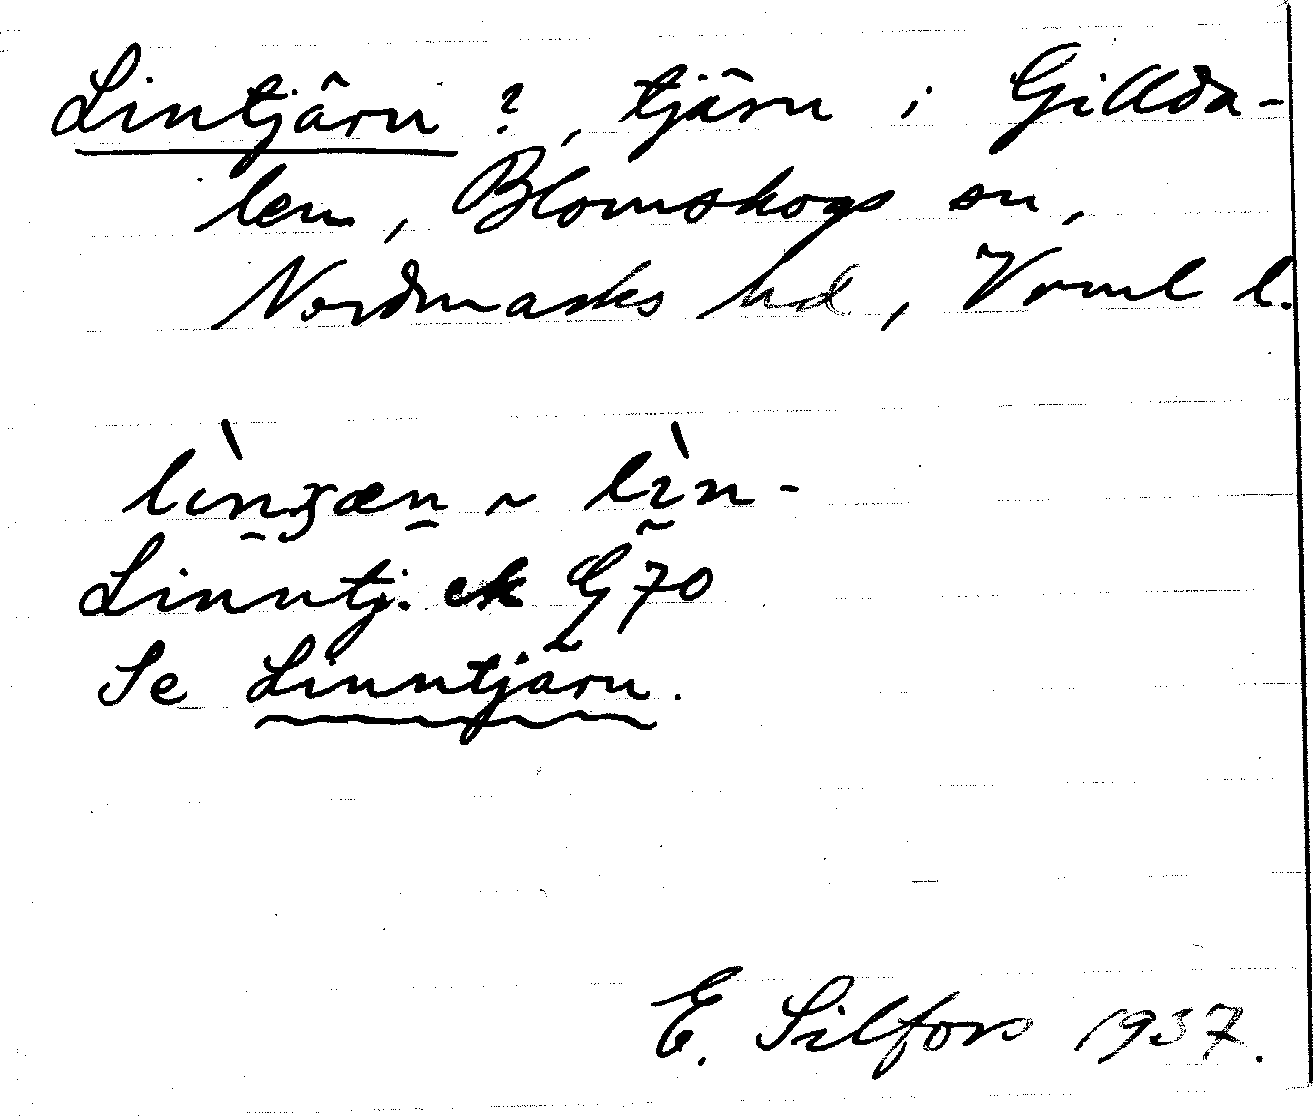 Lintjärn ?, tjärn i Gillda-
len, Blomskogs sn,
Nordmarks hd, Vrml l.
lìnʒæn ~ lìn-
Linntj. ek G 70
Se Linntjärn.
E. Silfors 1937.